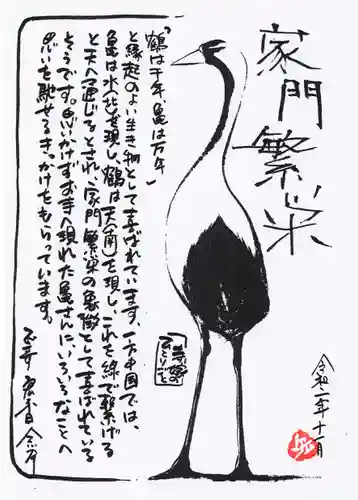 家門繁栄
「鶴は千年、亀は万年」
と縁起のよい生き物として喜ばれています。一方中国では、
亀は水(北)を現し、鶴は天(南)を現し、これを線で繋げる
と天へ通じるとされ、家門繁栄の象徴として喜ばれている
そうです。思いがけずお寺へ現れた亀さんに、いろいろなことへ
思いを馳せるきっかけをもらっています。
令和二年十一月